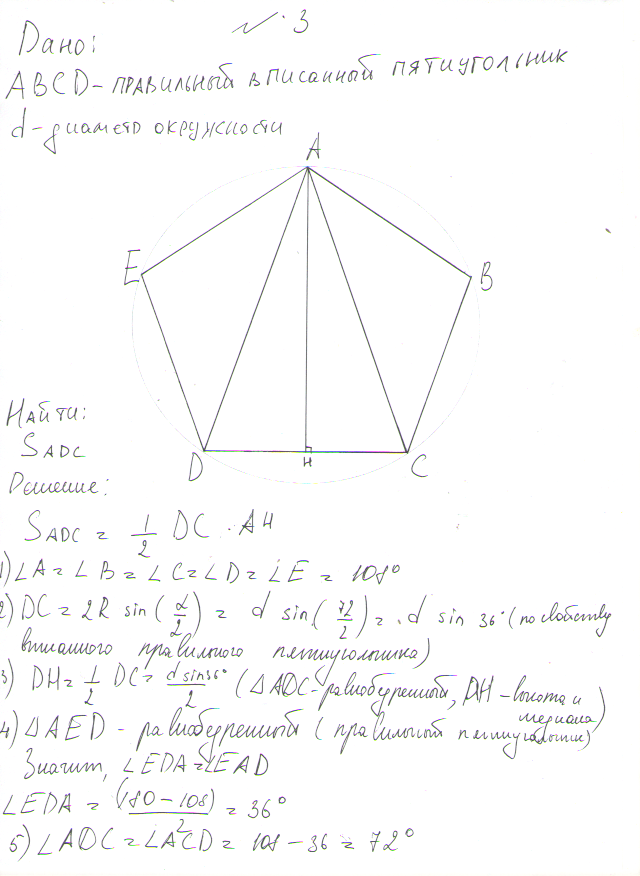 №3
Дано:
ABCD - правильный вписанный пятиугольник
d - диаметр окружности
A
E
B
D
H
C
Найти:
S ADC
Решение:
S ADC = 1/2 DC · AH
1) ∠A = ∠B = ∠C = ∠D = ∠E = 108°
2) DC = 2R sin(α/2) = d sin(72/2) = d sin 36° (по свойству
вписанного правильного пятиугольника)
3) DH = 1/2 DC = d sin36°/2 (△ADC - равнобедренный, AH - высота и
медиана)
4) △AED - равнобедренный (правильный пятиугольник)
Значит, ∠EDA = ∠EAD
∠EDA = (180-108)/2 = 36°
5) ∠ADC = ∠ACD = 108 - 36 = 72°